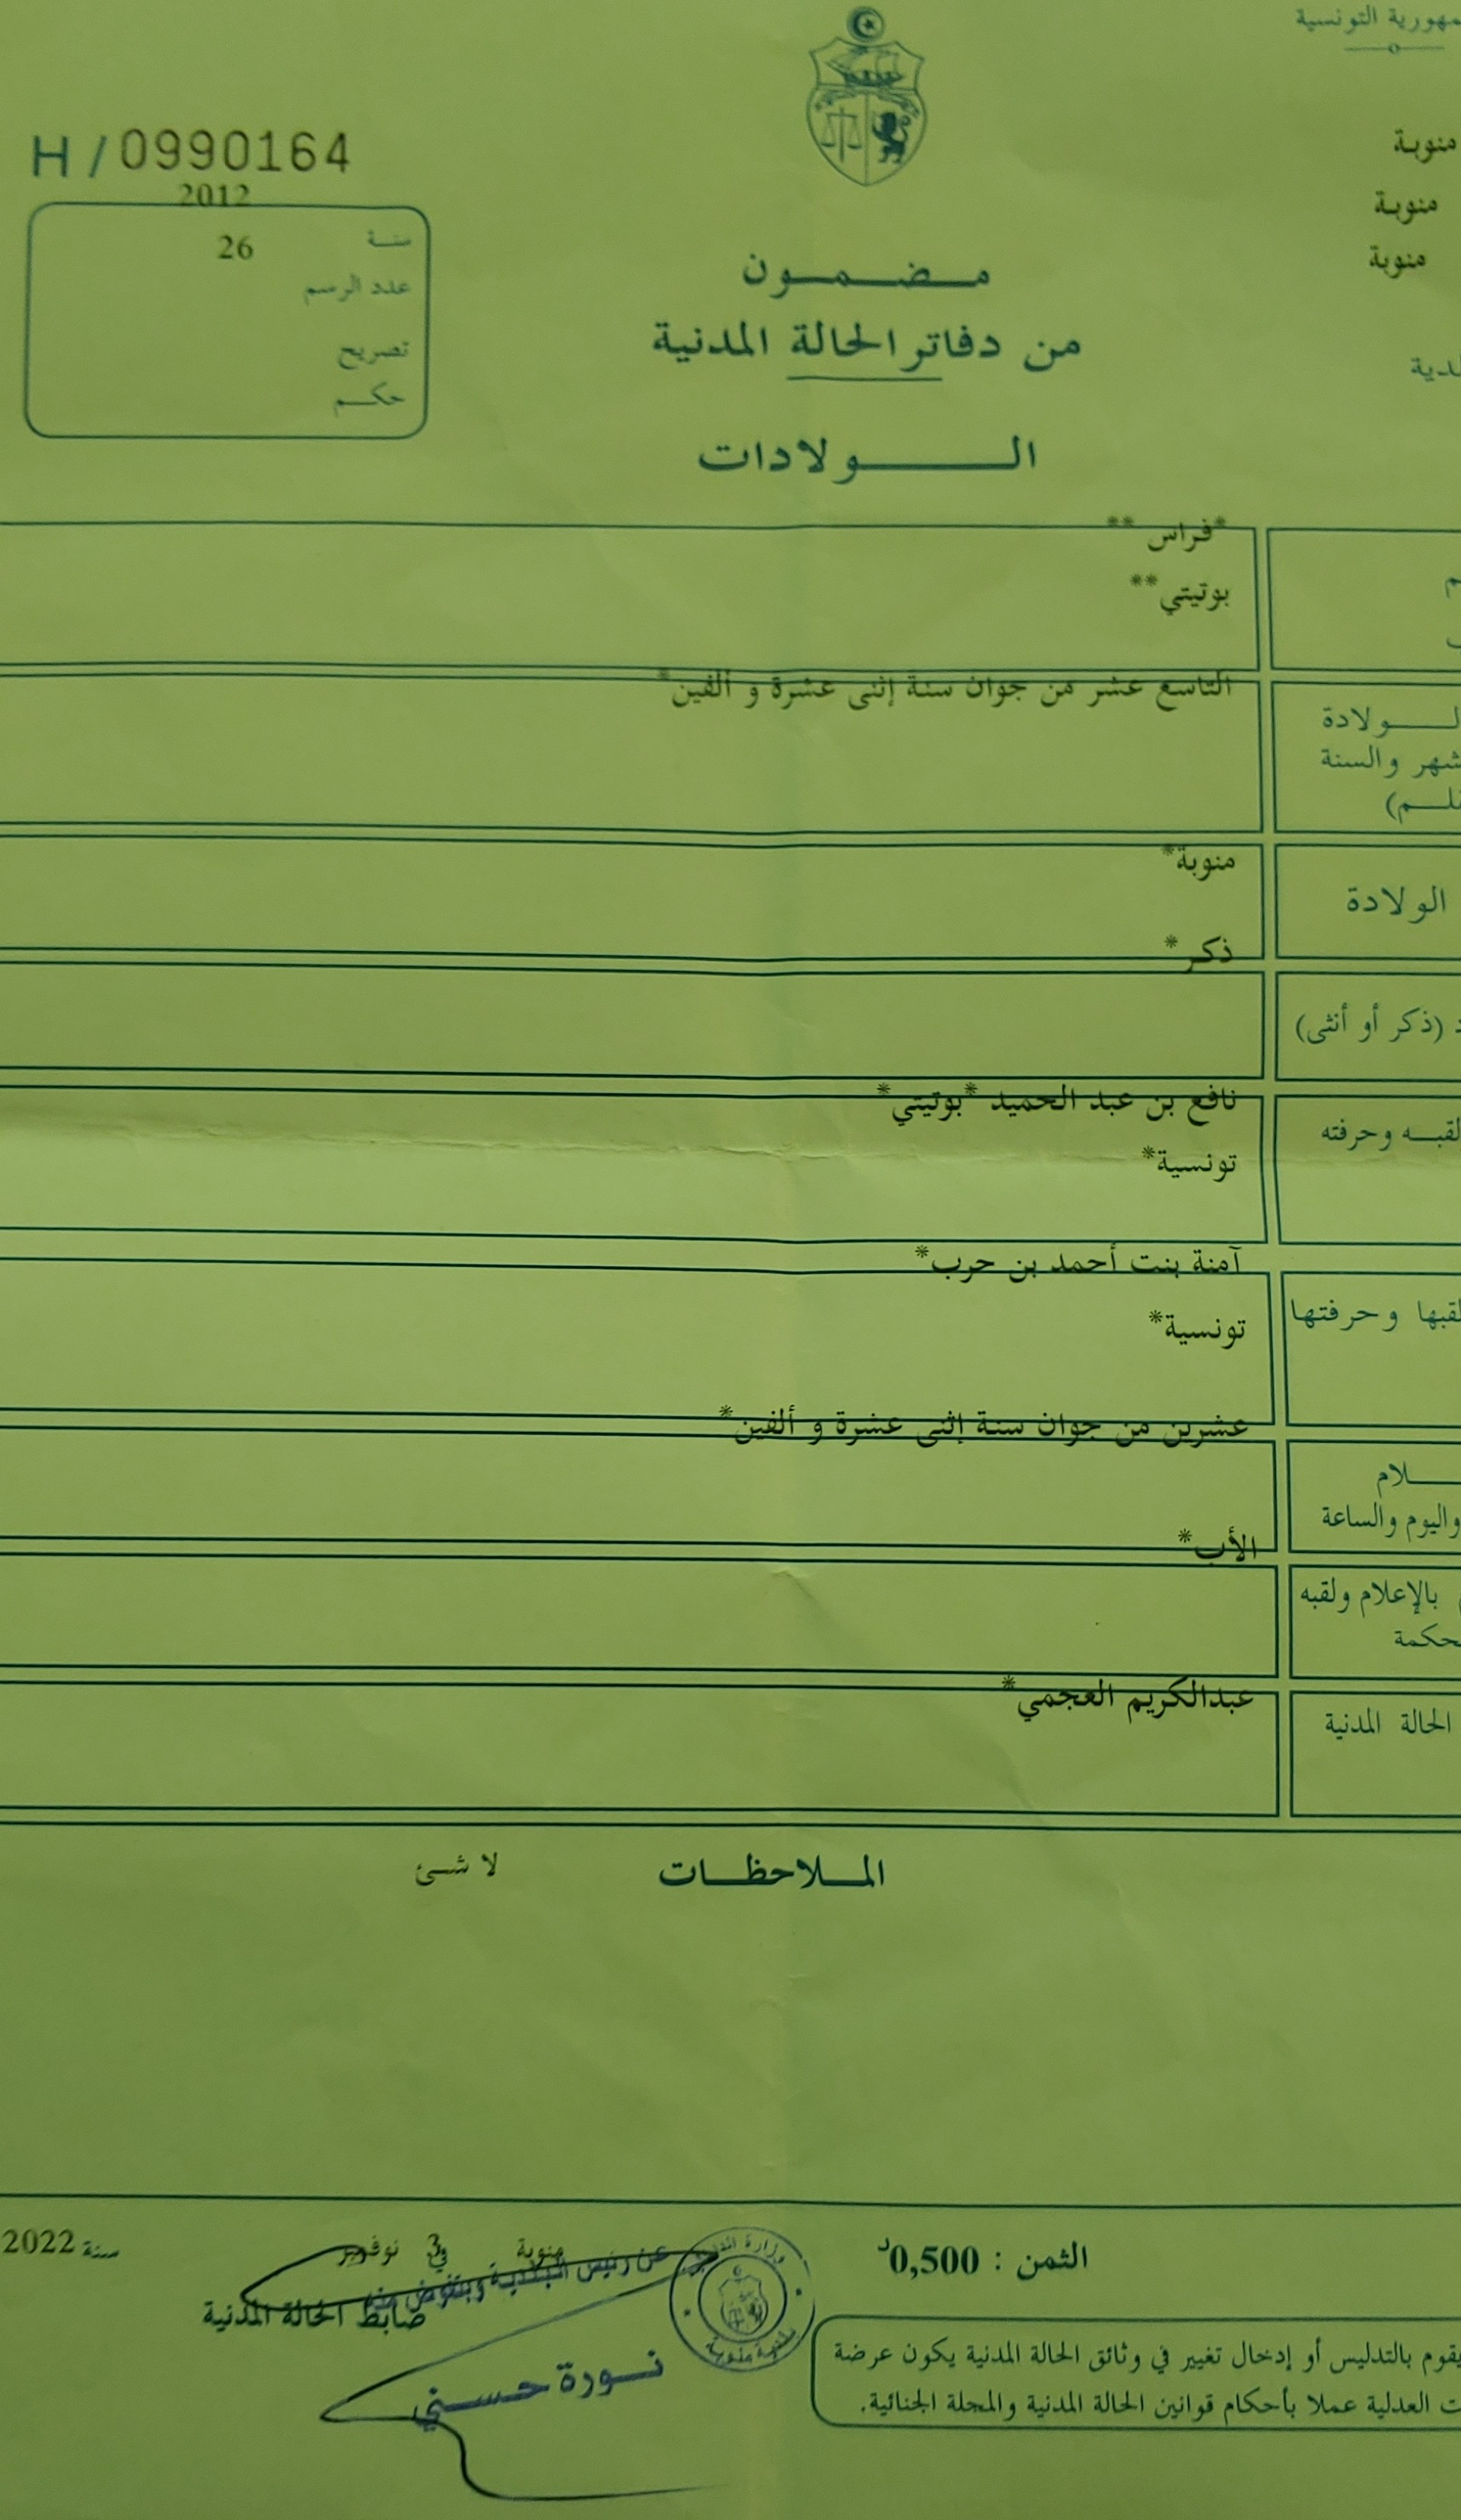 التونسية
H / 0990164
منوبة
منوبة
منوبة
2012
سنة
26
عدد الرسم
تصريح
حكم
مضمون
من دفاتر الحالة المدنية
الولادات
*فراس **
بوتيتي**
التاسع عشر من جوان سنة إثنى عشرة و ألفين*
الولادة
والسنة
منوبة*
الولادة
ذكر*
(ذكر أو أنثى)
نافع بن عبد الحميد *بوتيتي*
وحرفته
تونسية*
آمنة بنت أحمد بن حرب*
وحرفتها
تونسية*
عشرين من جوان سنة إثنى عشرة و ألفين*
واليوم والساعة
الأب*
بالإعلام ولقبه
عبدالكريم العجمي*
الحالة المدنية
الملاحظات
لا شئ
الثمن : 0,500د
منوبة في 3 نوفمبر سنة 2022
عن رئيس البلدية وبتفويض منه
ضابط الحالة المدنية
نورة حسني
بلدية منوبة
يقوم بالتدليس أو إدخال تغيير في وثائق الحالة المدنية يكون عرضة
العدلية عملا بأحكام قوانين الحالة المدنية والمجلة الجنائية.